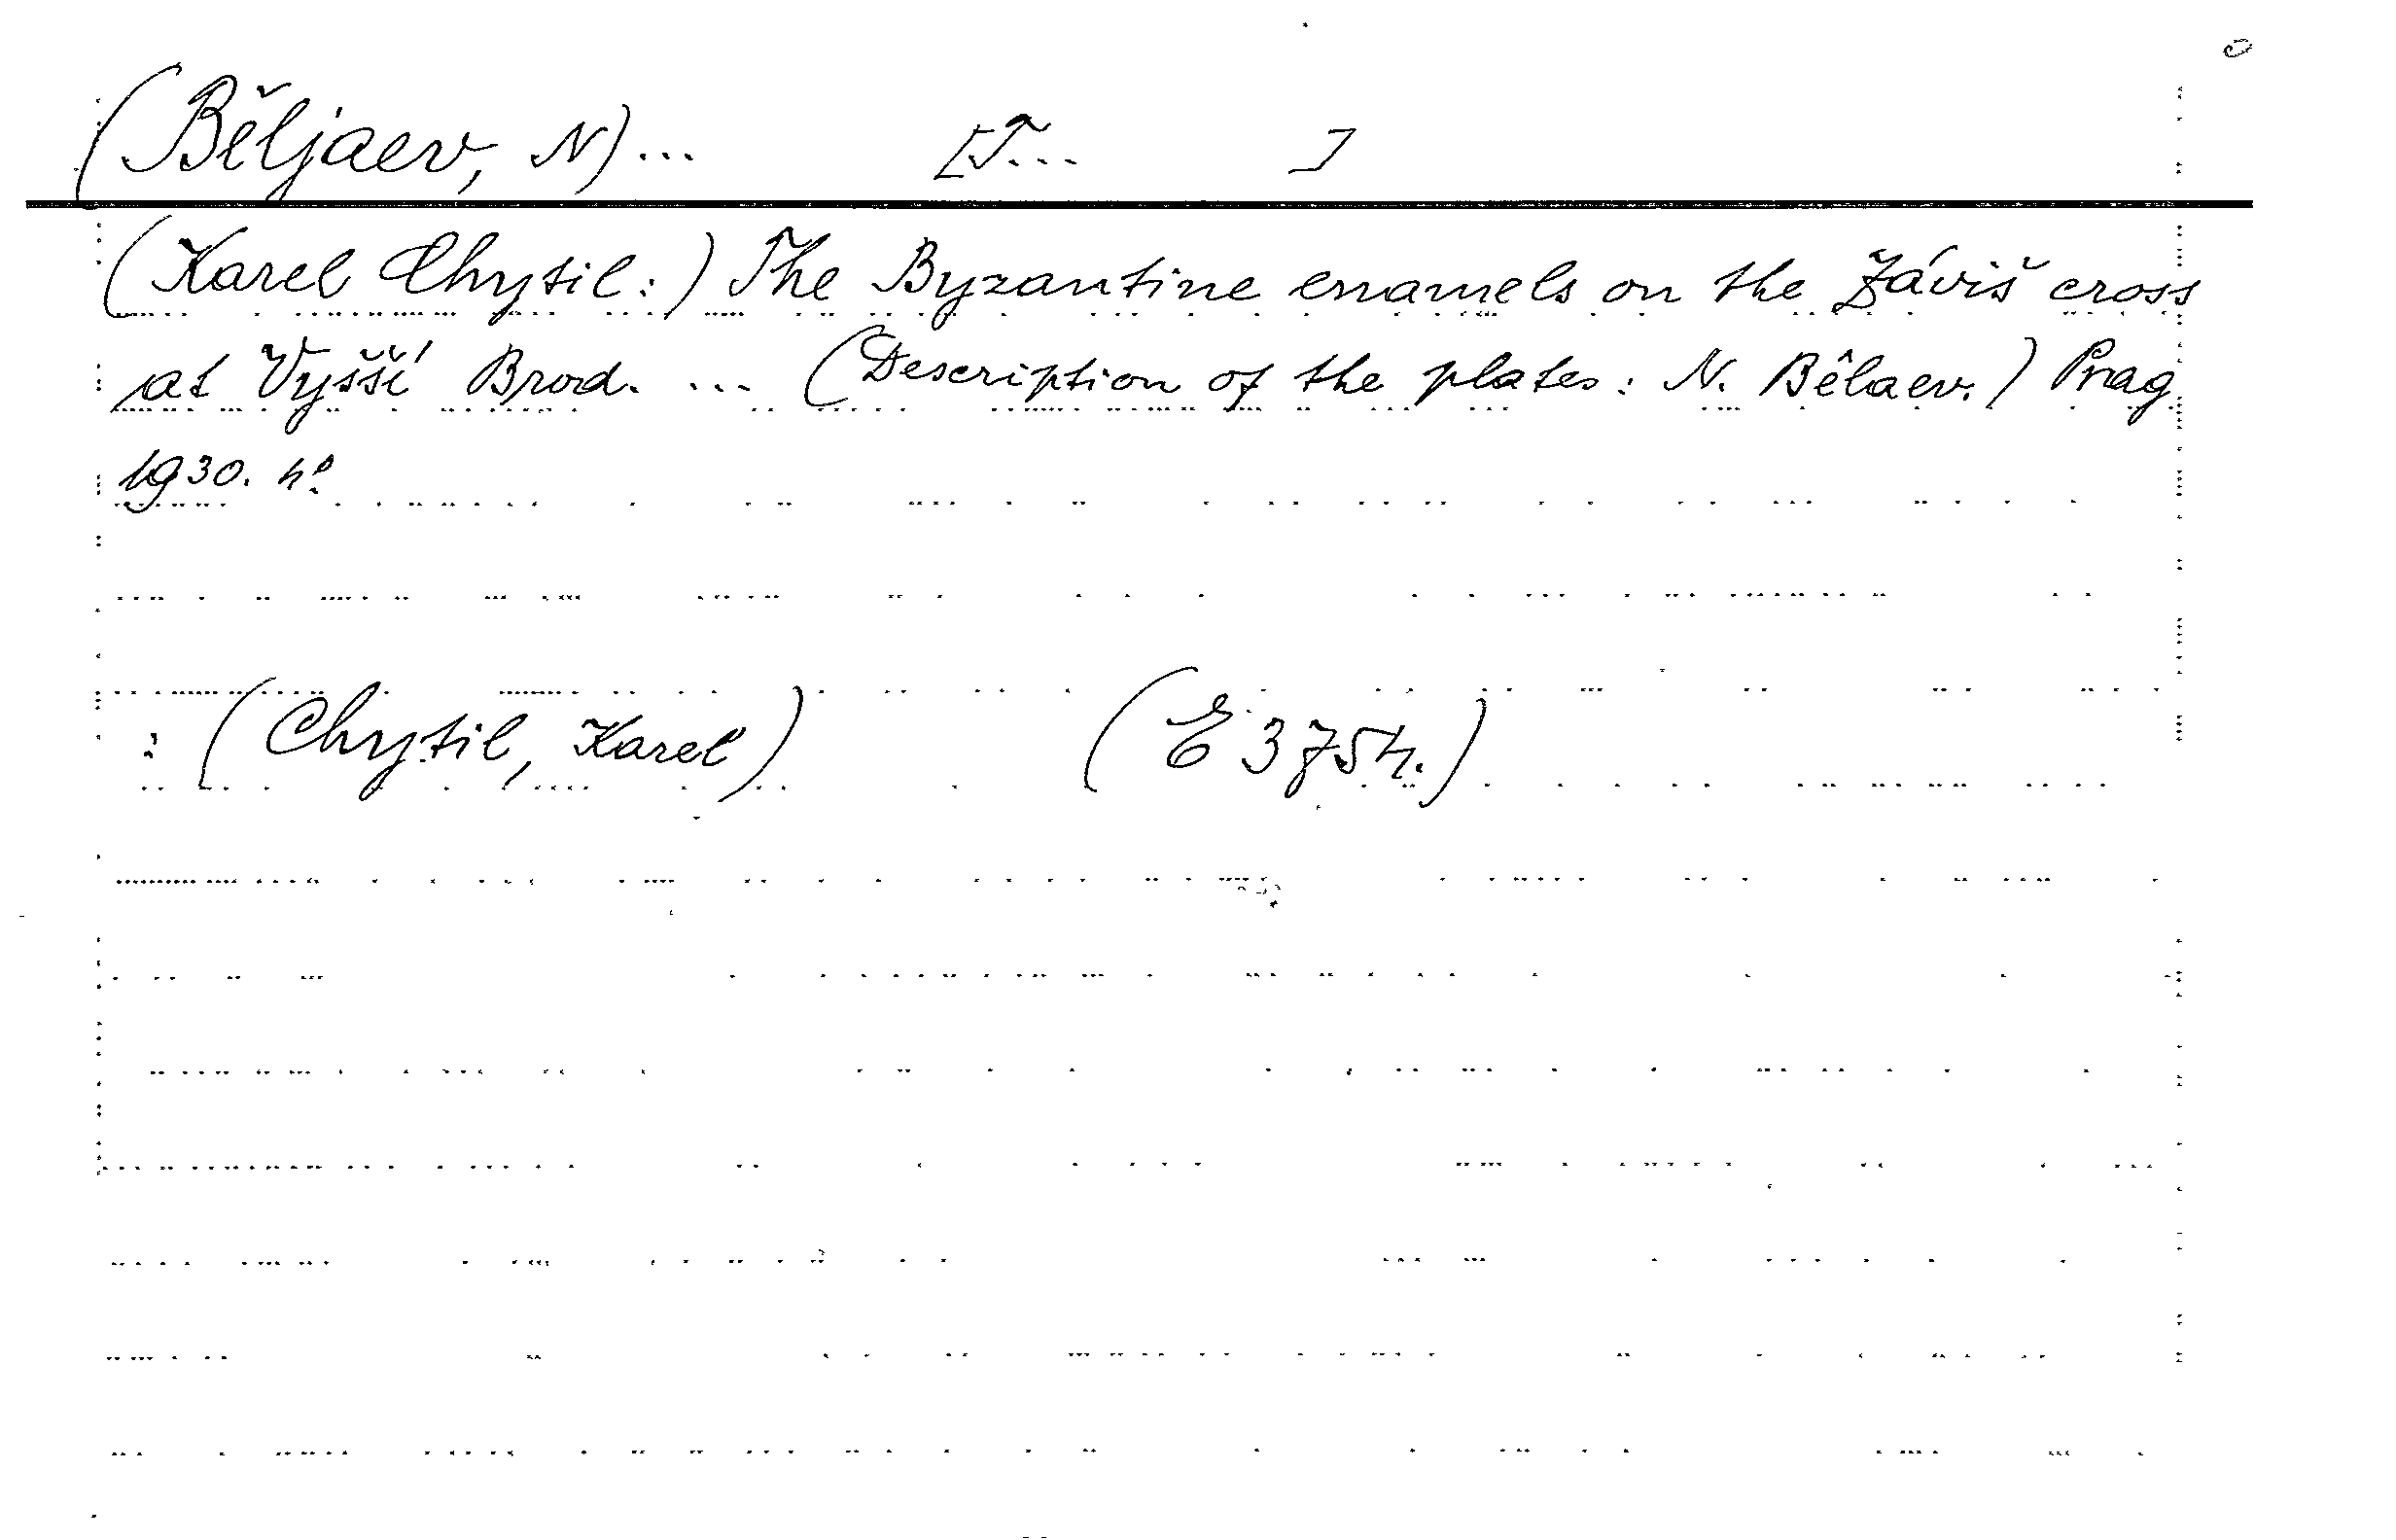 (Běljaev, N)... [T... ]
(Karel Chytil:) The Byzantine enamels on the Záviš cross
at Vyšší Brod. ... (Description of the plates: N. Bêlaev.) Prag
1930. 4º
: (Chytil, Karel) (E 3754.)